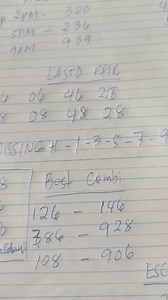 2PM - 306
5PM - 236
9PM - 939
LAST2 PAIR
06 46 28
08 48 28
ISSING # -1-3-5-7-9
Best Combi
126 - 146
786 - 928
108 - 906
ESC